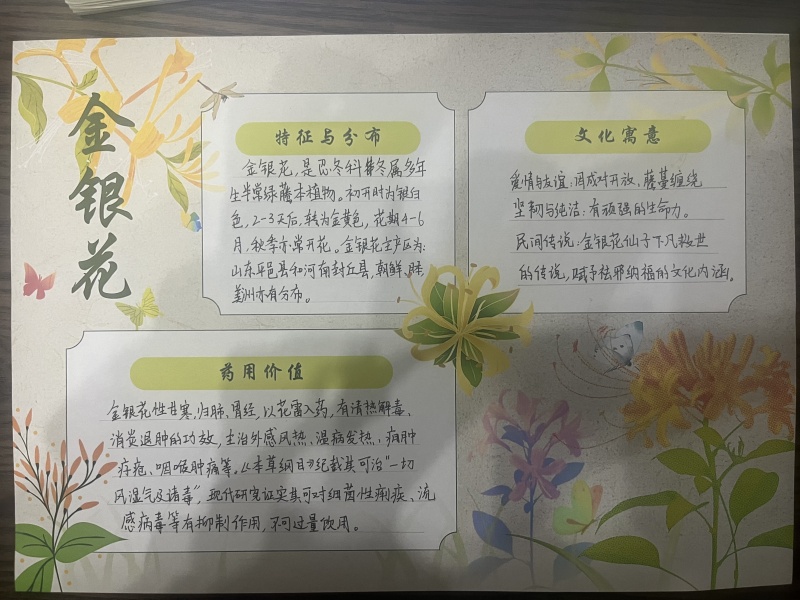 金银花
特征与分布
金银花，是忍冬科忍冬属多年
生半常绿藤本植物。初开时为银白
色，2-3天后，转为金黄色，花期4-6
月，秋季亦常开花。金银花主产区为：
山东平邑县和河南封丘县，朝鲜、
美洲亦有分布。
文化寓意
爱情与友谊：因成对开放、藤蔓缠绕
坚韧与纯洁：有顽强的生命力。
民间传说：金银花仙子下凡救世
的传说，赋予祛邪纳福的文化内涵。
药用价值
金银花性甘寒，归肺、胃经，以花蕾入药，有清热解毒、
消炎退肿的功效，主治外感风热、温病发热、痈肿
疔疮、咽喉肿痛等。《本草纲目》纪载其可治“一切
风湿气及诸毒”，现代研究证实其可对细菌性痢疾、流
感病毒等有抑制作用，不可过量饮用。